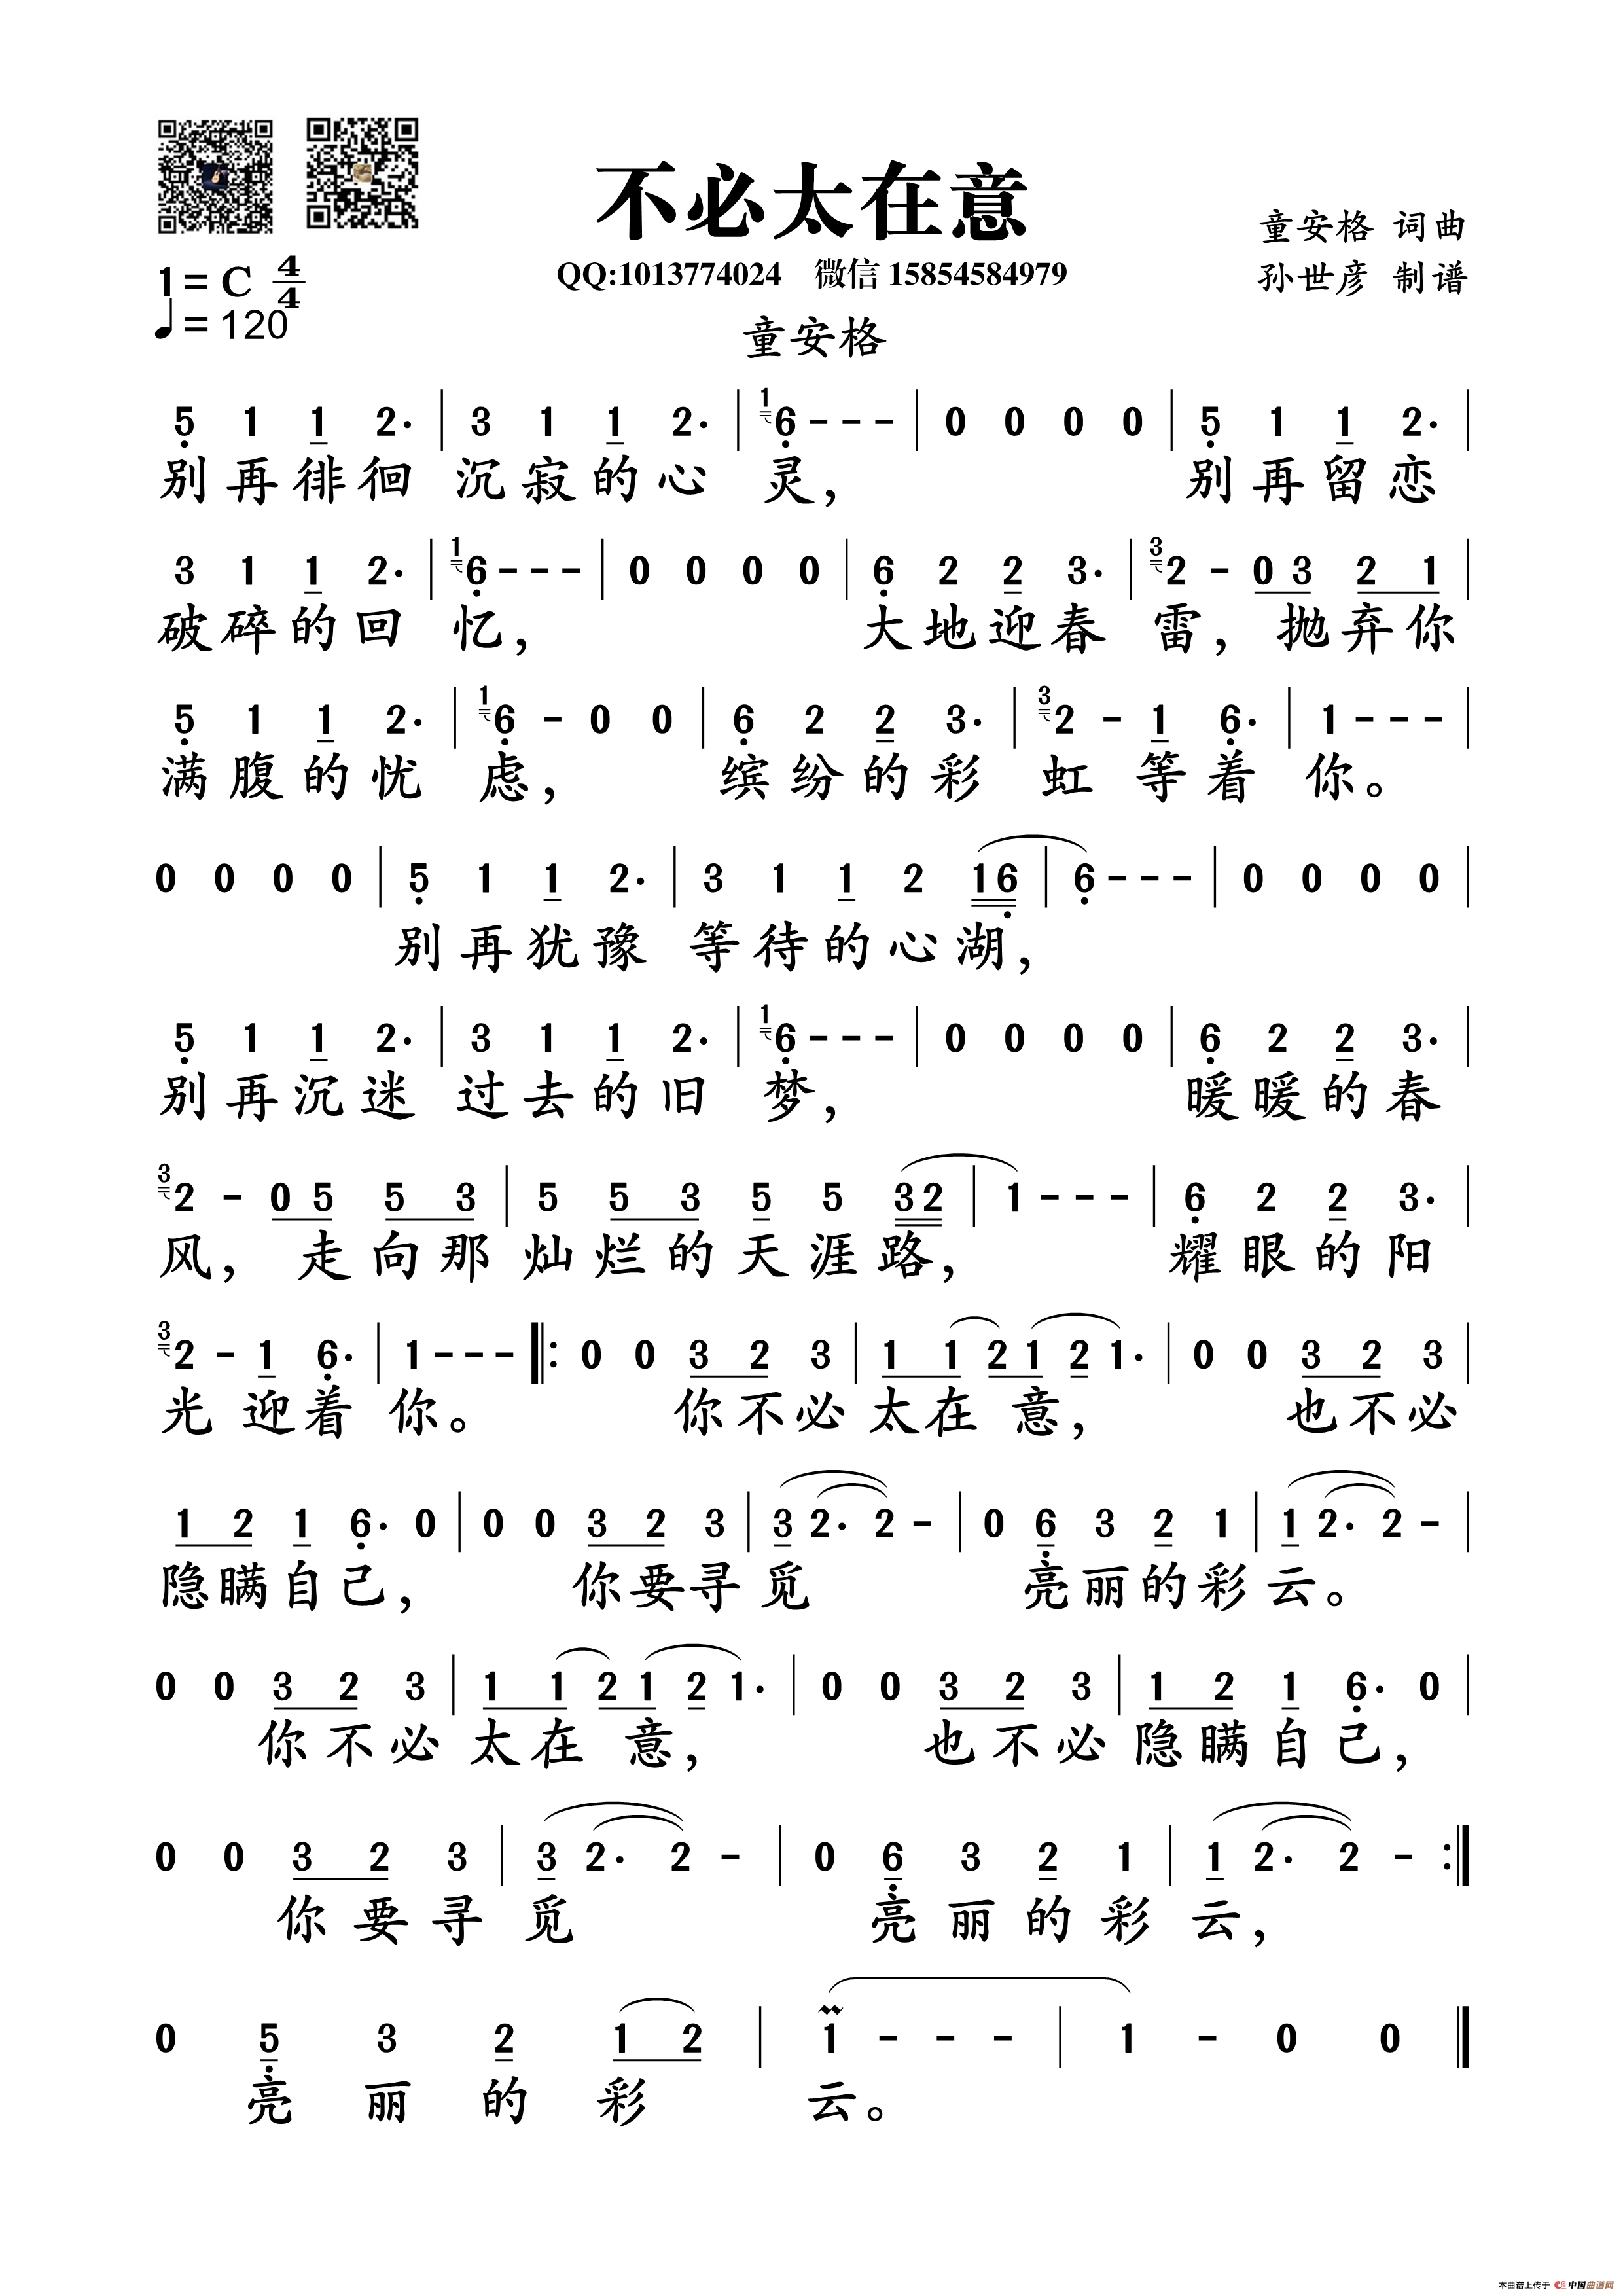 不必太在意
童安格 词曲
QQ:1013774024 微信 15854584979
孙世彦 制谱
1= C 4/4
♩= 120
童安格
5̣ 1 1 2. | 3 1 1 2. | 1 6̣ - - - | 0 0 0 0 | 5̣ 1 1 2. |
别再徘徊 沉寂的心 灵, 别再留恋
3 1 1 2. | 1 6̣ - - - | 0 0 0 0 | 6̣ 2 2 3. | 3 2 - 0 3 2 1 |
破碎的回 忆, 大地迎春 雷, 抛弃你
5̣ 1 1 2. | 1 6̣ - 0 0 | 6̣ 2 2 3. | 3 2 - 1 6̣. | 1 - - - |
满腹的忧 虑, 缤纷的彩 虹 等着 你。
0 0 0 0 | 5̣ 1 1 2. | 3 1 1 2 1 6̣ | 6̣ - - - | 0 0 0 0 |
别再犹豫 等待的心湖,
5̣ 1 1 2. | 3 1 1 2. | 1 6̣ - - - | 0 0 0 0 | 6̣ 2 2 3. |
别再沉迷 过去的旧 梦, 暖暖的春
3 2 - 0 5 5 3 | 5 5 3 5 5 3 2 | 1 - - - | 6̣ 2 2 3. |
风, 走向那 灿烂的天涯路, 耀眼的阳
3 2 - 1 6̣. | 1 - - - |: 0 0 3 2 3 | 1 1 2 1 2 1. | 0 0 3 2 3 |
光 迎着 你。 你不必 太在 意, 也不必
1 2 1 6̣. 0 | 0 0 3 2 3 | 3 2. 2 - | 0 6̣ 3 2 1 | 1 2. 2 - |
隐瞒自己, 你要寻 觅 亮丽的彩 云。
0 0 3 2 3 | 1 1 2 1 2 1. | 0 0 3 2 3 | 1 2 1 6̣. 0 |
你不必 太在 意, 也不必 隐瞒自己,
0 0 3 2 3 | 3 2. 2 - | 0 6̣ 3 2 1 | 1 2. 2 - :|
你要寻 觅 亮丽的彩 云,
0 5̣ 3 2 1 2 | 1 - - - | 1 - 0 0 ||
亮丽的彩 云。
本曲谱上传于 中国曲谱网